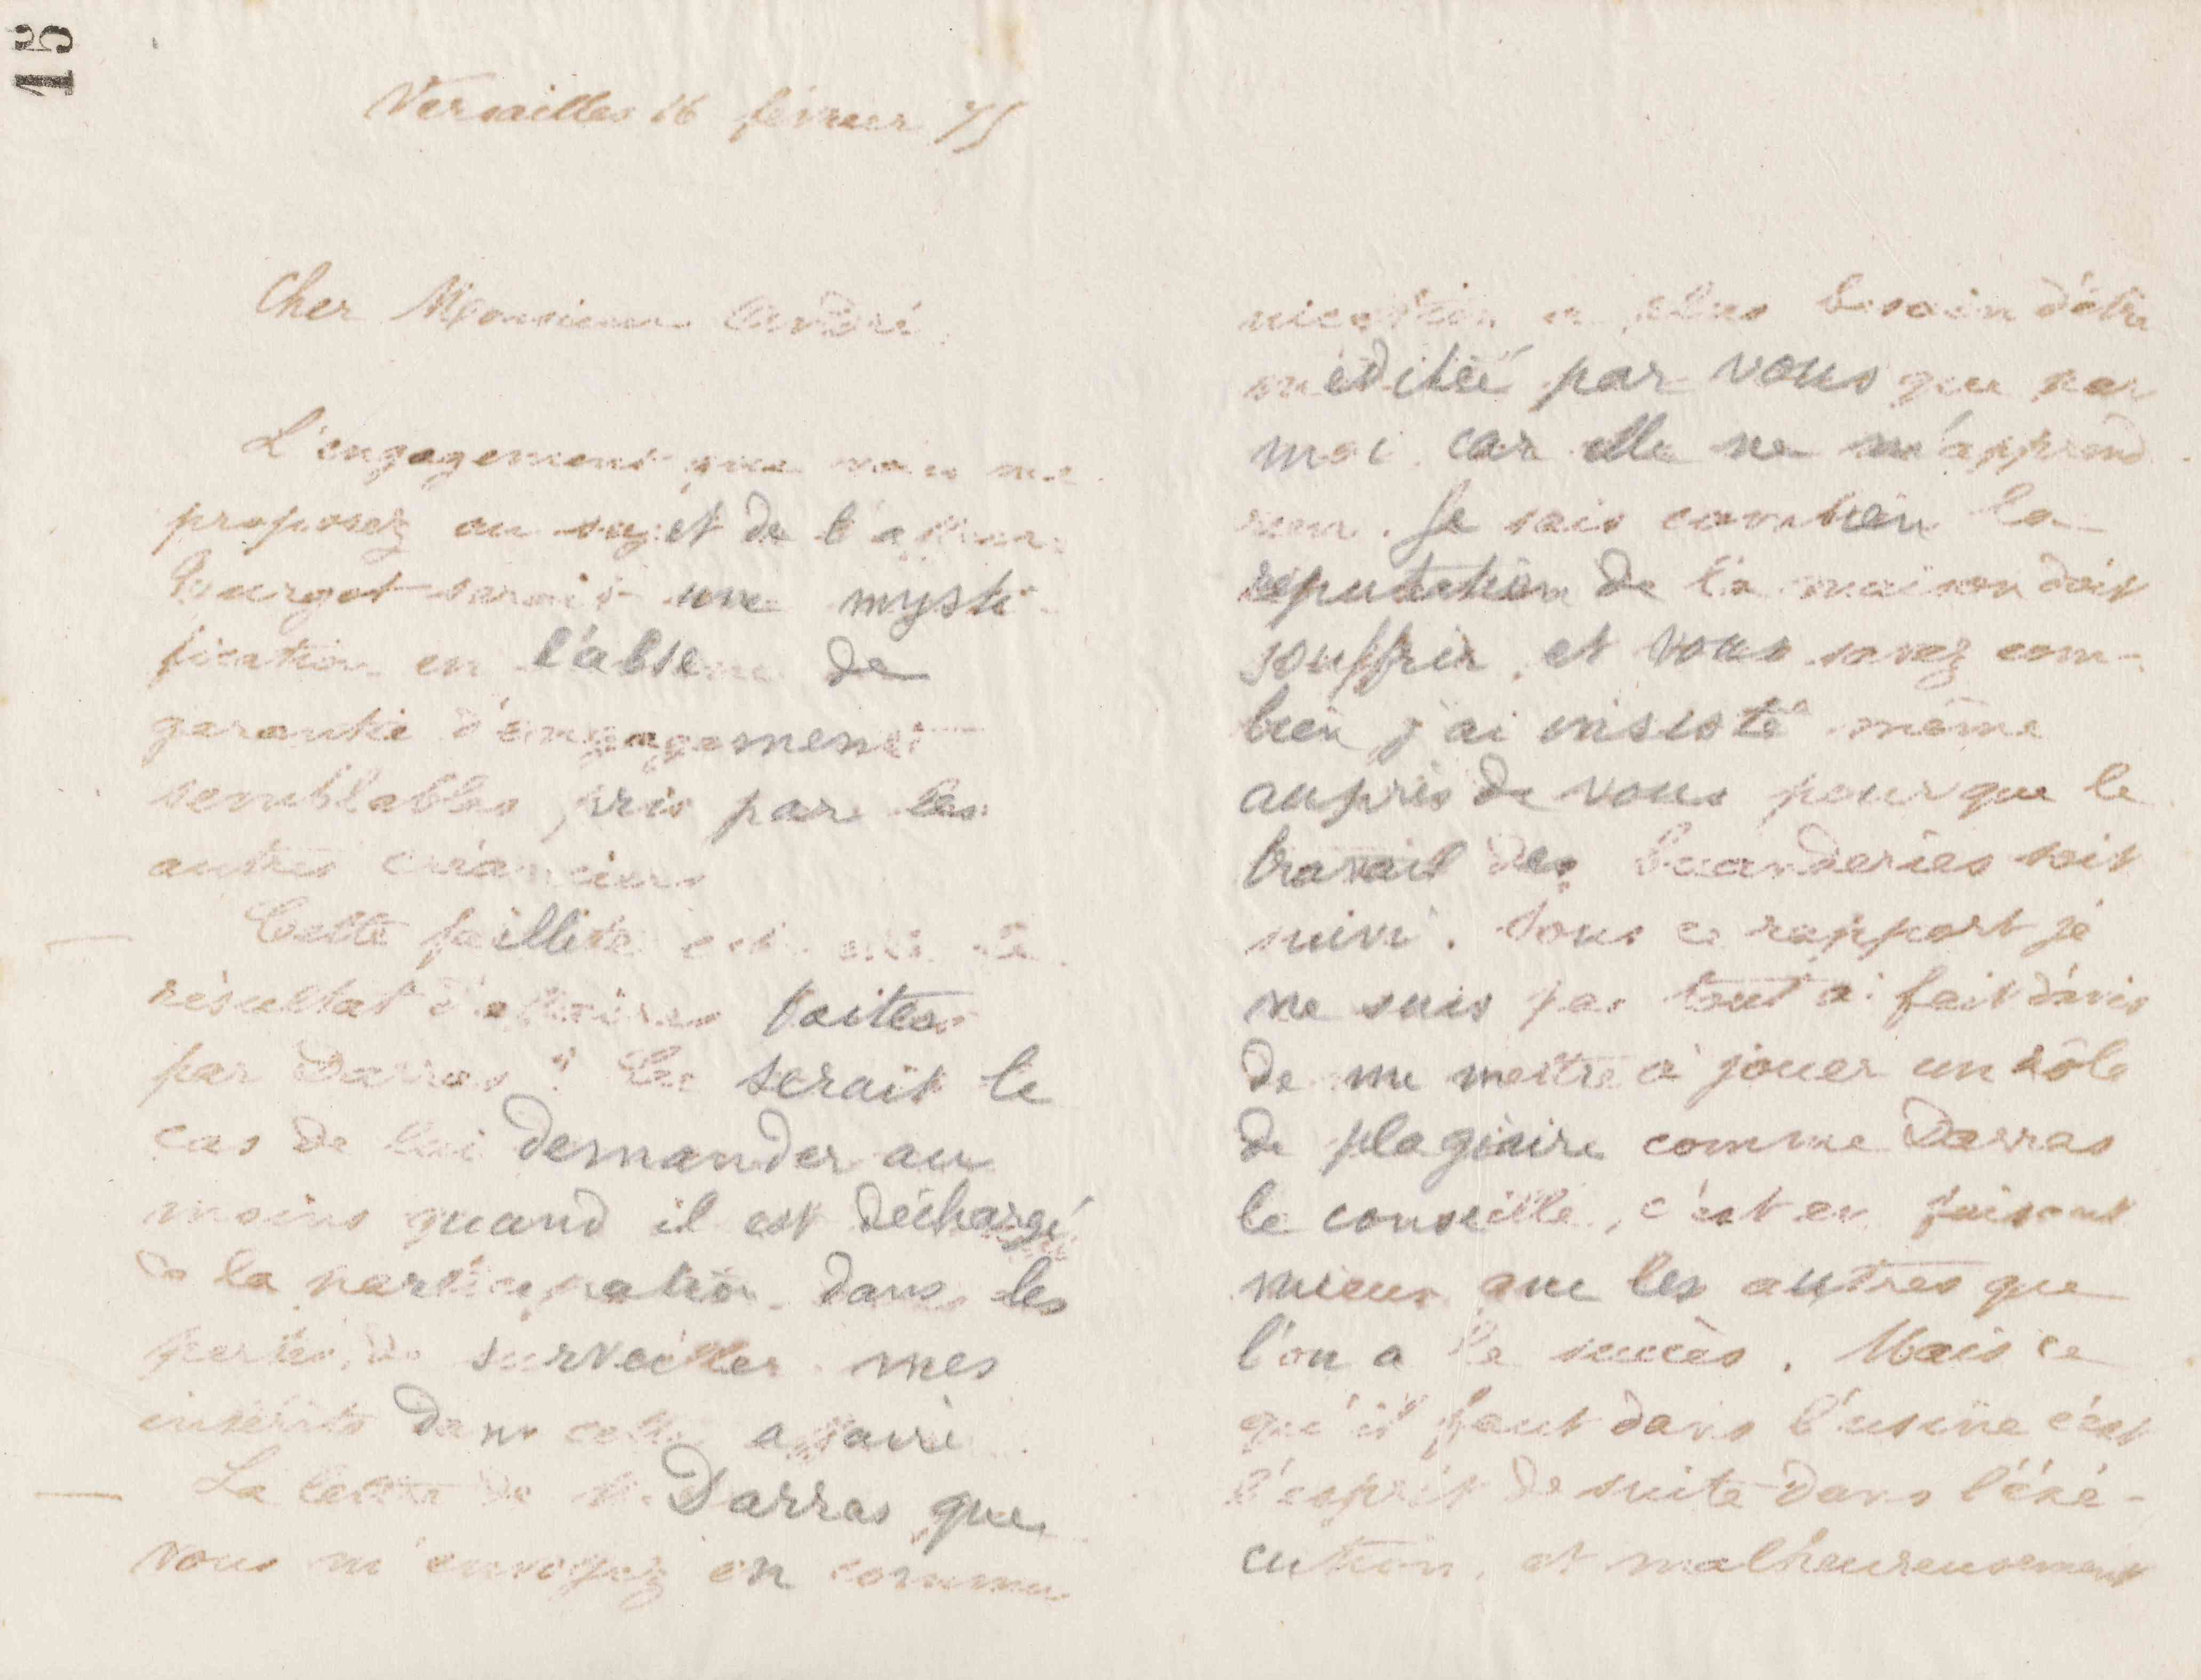 15
Versailles 16 février 75
Cher Monsieur André,
L'engagement que vous me
proposez au sujet de l'affaire
Bourget serait une mysti-
fication en l'absence de
garantie d'engagements
semblables pris par les
autres créanciers
Cette faillite est elle le
résultat d'affaires faites
par Darras ? Ce serait le
cas de lui demander au
moins quand il est déchargé
de la participation dans les
pertes, de surveiller mes
intérêts dans cette affaire.
La lettre de M. Darras que
vous m'envoyez en commu
nication a plus besoin d'être
méditée par vous que par
moi car elle ne m'apprend
rien. Je sais combien la
réputation de la maison doit
souffrir, et vous savez com-
bien j'ai insisté même
auprès de vous pour que le
travail des buanderies soit
suivi. Sous ce rapport je
ne suis pas tout à fait d'avis
de me mettre à jouer un rôle
de plagiaire comme Darras
le conseille, c'est en faisant
mieux que les autres que
l'on a le succès. Mais ce
qu'il faut dans l'usine c'est
l'esprit de suite dans l'éxé-
cution, et malheureusement